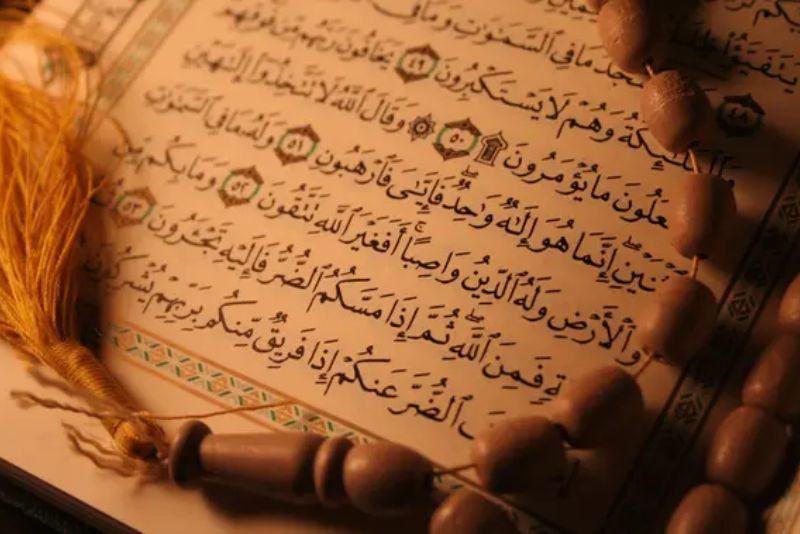 يَتَفَيَّؤُا۟ ظِلَـٰ
٤٨ ـسْجُدُ مَا فِى ٱلسَّمَـٰوَٰتِ وَمَا فِى
وَٱلْمَلَـٰٓئِكَةُ وَهُمْ لَا يَسْتَكْبِرُونَ ٤٩ يَخَافُونَ رَبَّهُم مِّن فَوْقِهِمْ
ـعَلُونَ مَا يُؤْمَرُونَ ۩ ٥٠ ۞ وَقَالَ ٱللَّهُ لَا تَتَّخِذُوٓا۟ إِلَـٰهَيْنِ
ـنَيْنِ ۖ إِنَّمَا هُوَ إِلَـٰهٌ وَٰحِدٌ ۖ فَإِيَّـٰىَ فَٱرْهَبُونِ ٥١ وَلَهُۥ مَا فِى ٱلسَّمَـٰوَٰتِ
وَٱلْأَرْضِ وَلَهُ ٱلدِّينُ وَاصِبًا ۚ أَفَغَيْرَ ٱللَّهِ تَتَّقُونَ ٥٢ وَمَا بِكُم مِّن
ـةٍ فَمِنَ ٱللَّهِ ۖ ثُمَّ إِذَا مَسَّكُمُ ٱلضُّرُّ فَإِلَيْهِ تَجْـَٔرُونَ ٥٣
ٱلضُّرَّ عَنكُمْ إِذَا فَرِيقٌ مِّنكُم بِرَبِّهِمْ يُشْرِكُونَ